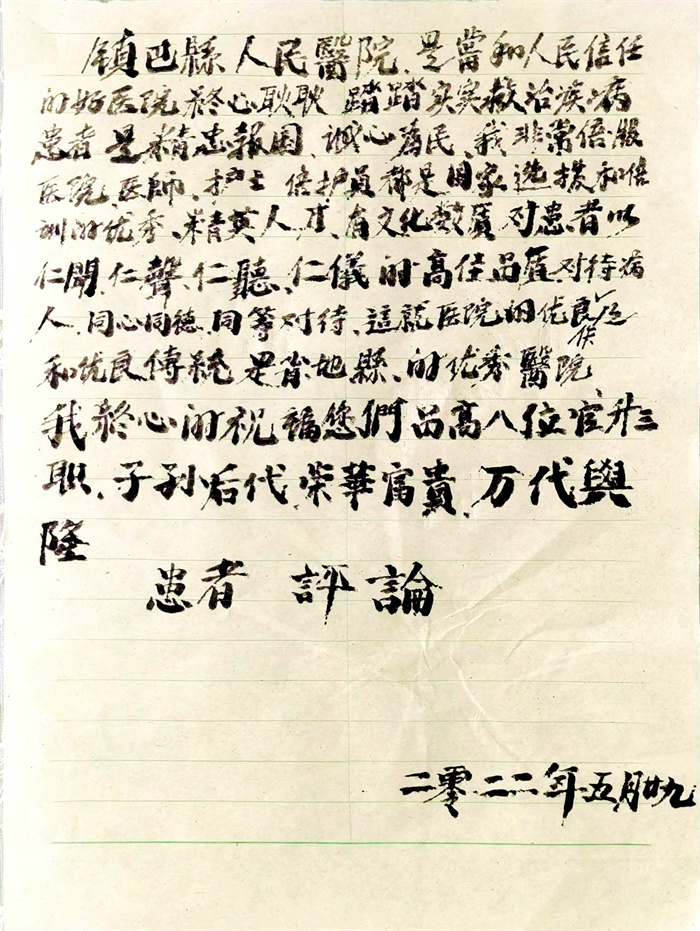 镇巴縣人民醫院、是當和人民信任
的好医院、終心耿耿 踏踏实实救治疾病
患者 是精忠報国、诚心為民、我非常佰服
医院医師、护士 倍护员都是国家选拨和倍
训的优秀、精英人才、有文化数质对患者以
仁聞、仁聲、仁聽、仁儀的高佳品质、对待病
人、同心同德、同等对待、这就医院的优良作
和优良傳統 是本地縣、的优秀醫院、
我終心的祝福您們品高八位官升三
职、子孙后代、荣華富貴、万代與
隆
患者 評論
二零二二年五月廿九